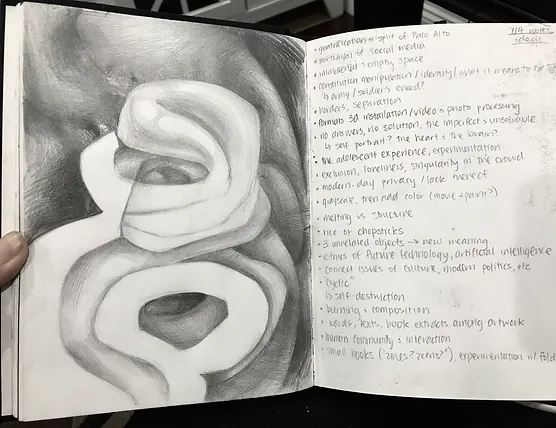 7/4 notes
ideas
• gentrification or split of Palo Alto
• portrayal of social media
• immaterial + empty space
• constitution manipulation / identity / what it means to be
↳ army / soldier's creed?
• borders, separation
• formats 3d installation/video + photo processing
• no answers, no solution, the imperfect + unsolvable
↳ self portrait? the heart + the brain?
• the adolescent experience, experimentation
• exclusion, loneliness, singularity in the crowd
• modern-day privacy / lack thereof
• grayscale, then add color (movie + paint?)
• melting vs structure
• rice or chopsticks
• 3 unrelated objects → new meaning
• ethics of future technology, artificial intelligence
• connect issues of culture, modern politics, etc
• "cyclic"
↳ self destruction
• burning + composition
• words, texts, book extracts among artwork
• human community + interaction
• small books ("zines? zeens?"), experimentation w/ fold